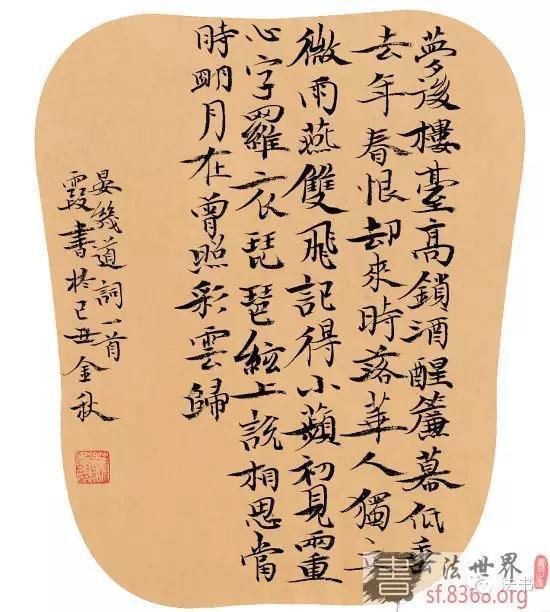 夢後樓臺高鎖酒醒簾幕低垂
去年春恨却來時落華人獨立
微雨燕雙飛記得小蘋初見兩重
心字羅衣琵琶絃上説相思當
時明月在曾照彩雲歸
晏幾道詞一首
霞書於己丑金秋
書法世界
sf.8368.org